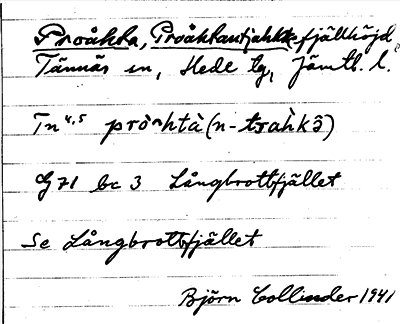 Proåkta, Proåktantjahkke fjällhöjd
Tännäs sn, Hede tg, Jämtl. l.
Tn 4,5 prò^htà (n-tsahkɔ̂)
G 71 bc 3 Långbrottfjället
Se Långbrottfjället
Björn Collinder 1941